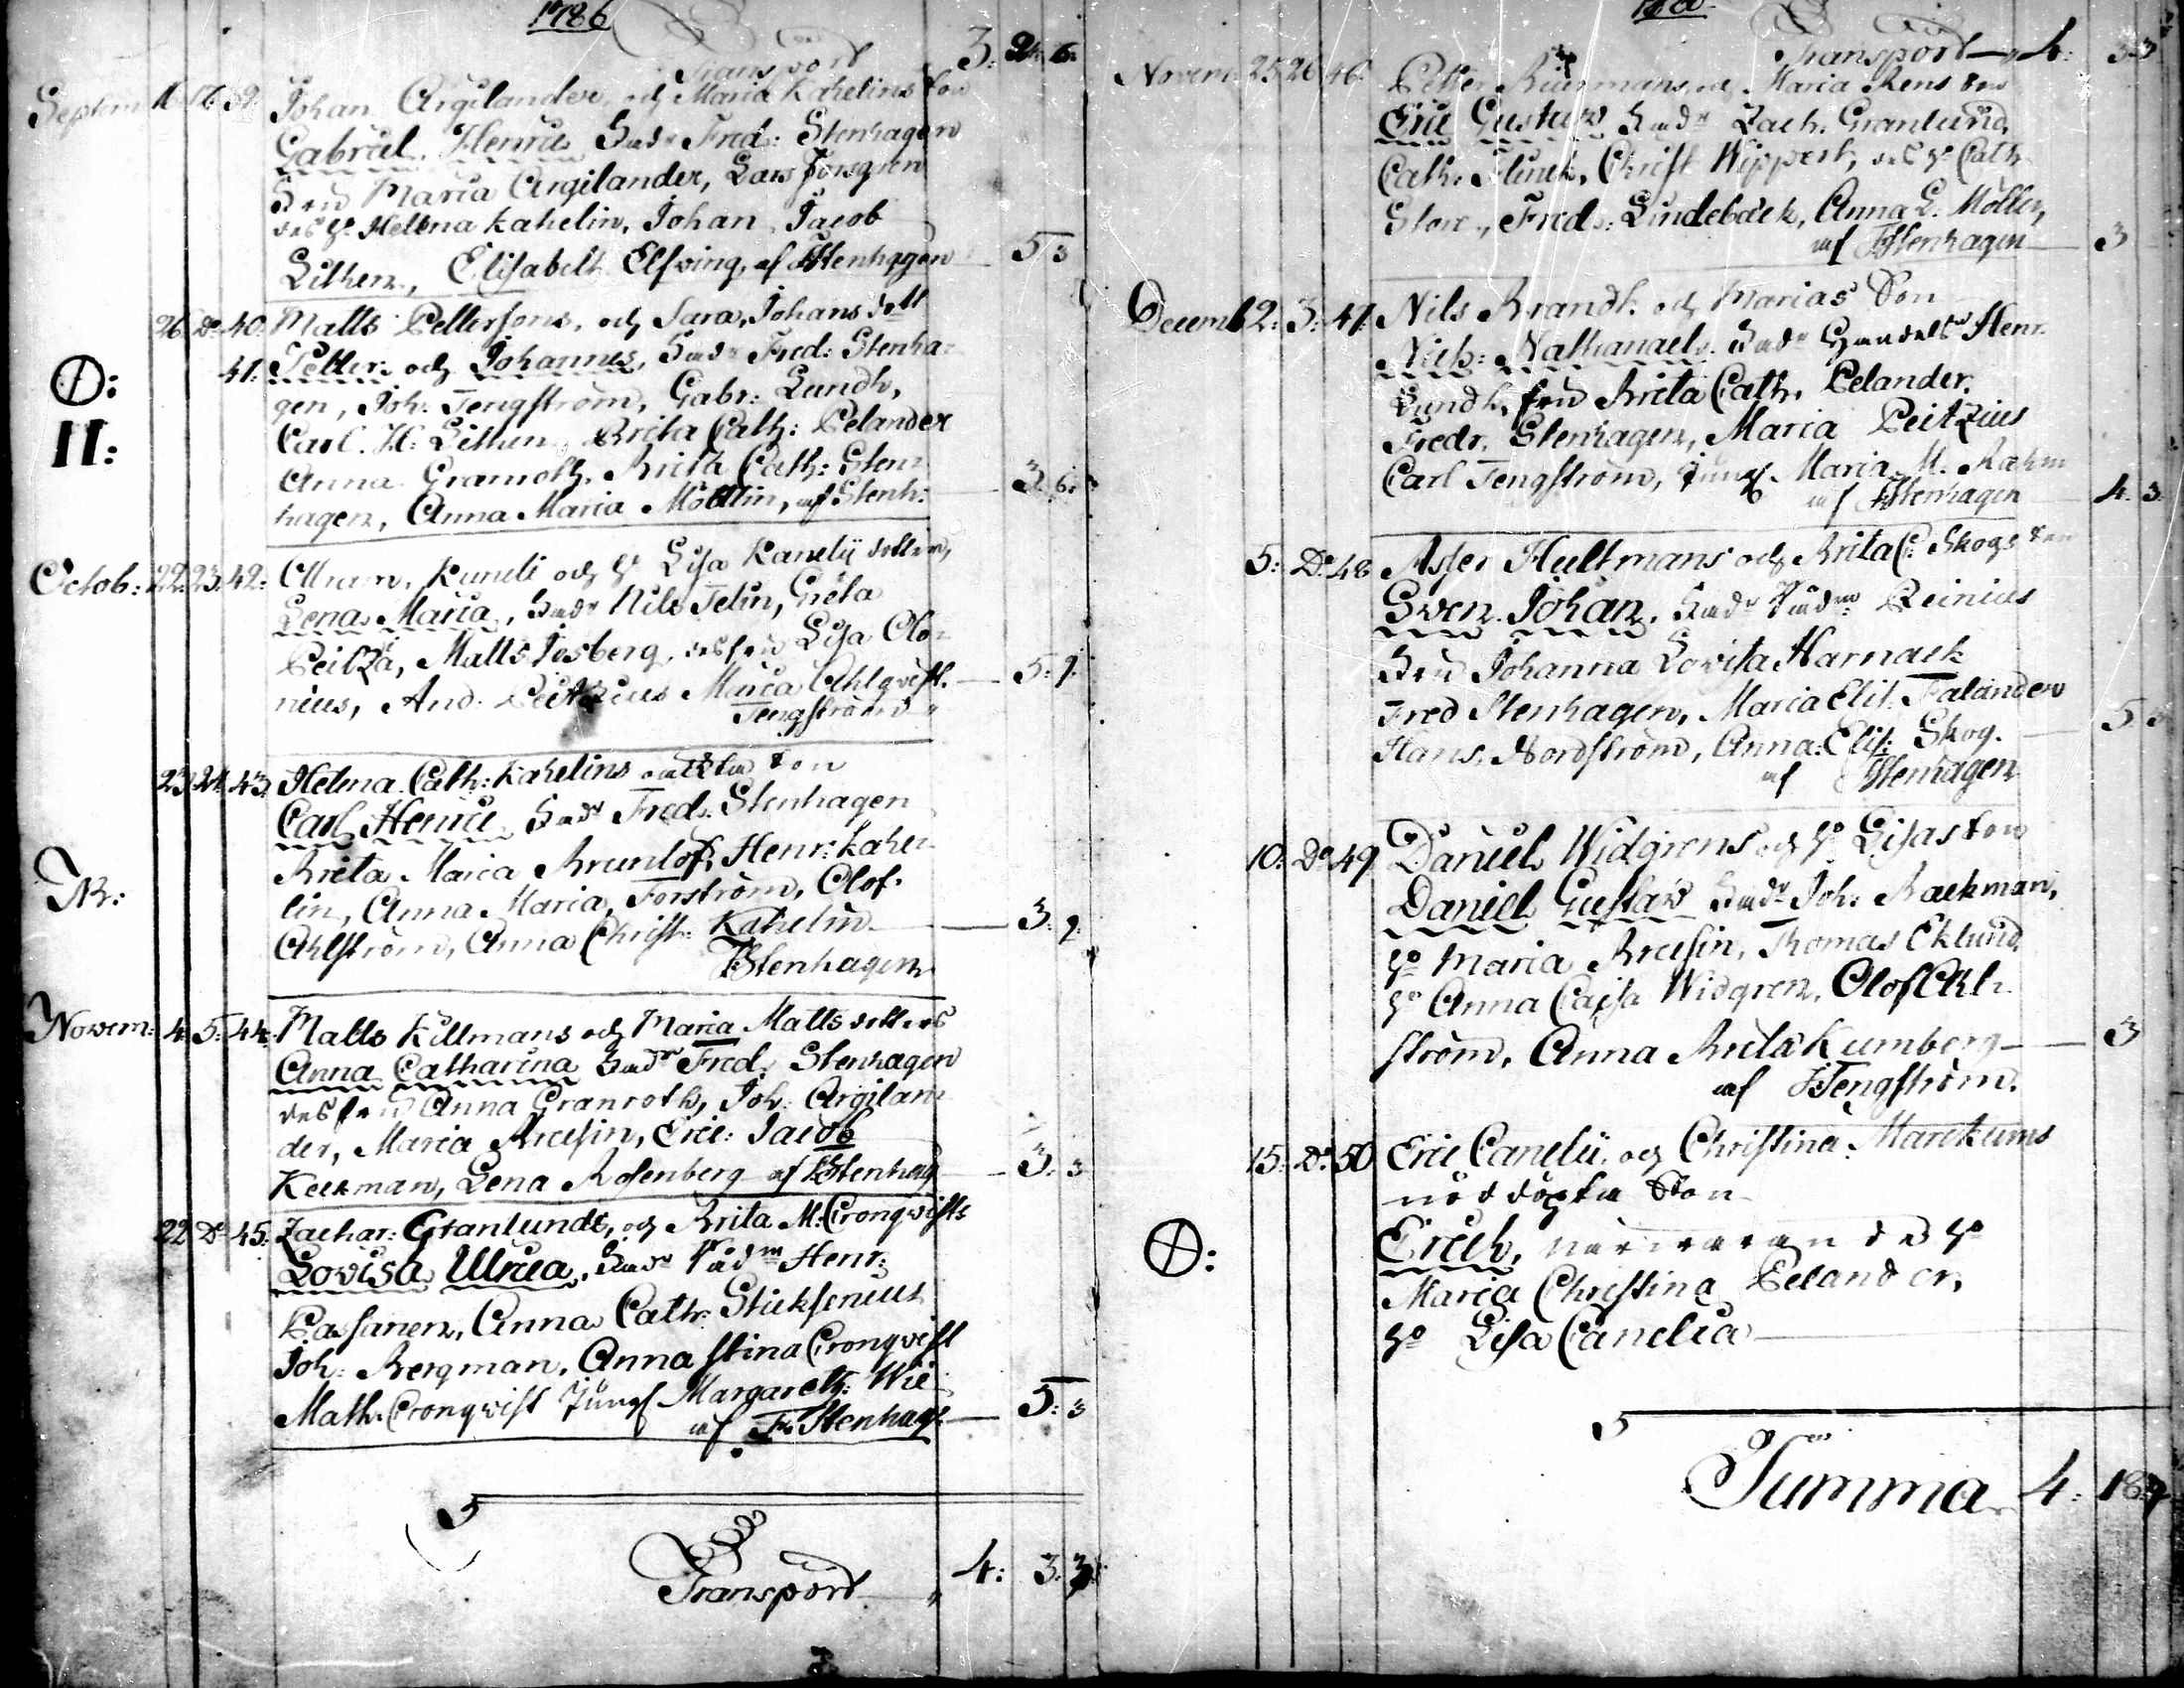 1786
Transport 3: 24: 6:
Septem 16 17 39: Johan Argilander, och Maria Kahelins Son
Gabriel Henric Fad:r Fred: Stenhagen
Maria Argilander, Lars Forsgren
Hellena Kahelin, Johan Jacob
Lithen, Elisabeth Elfving, af FStenhagen 5 3
26 D:o 40: Matts Pettersons, och Sara, Johans dott
41: Petter och Johannes, Fad:r Fred: Stenha-
gen, Joh: Tengström, Gabr: Lundh,
Carl. H: Lithen, Brita Cath: Pelander
Anna Granroth, Brita Cath: Sten-
hagen, Anna Maria Möllin, af Stenh: 3 6:
II:
Octob: 22: 23: 42: Kaneli och H:o Lisa Kanelii dotter,
Lena Maria, Fad:r Nils Telin, Greta
Peitza, Matts Josberg, Lisa Olo-
nius, And: Peitzius Maria Ahlqvist. 5: 9:
Tengström
23 24 43: Helena Cath: Kahelins Son
Carl Henric Fad:r Fred: Stenhagen
Brita Maria Brunlöf, Henr: Kahe-
lin, Anna Maria, Forström, Olof
Ahlström, Anna Christ: Kahelin 3: 9:
FStenhagen
Novem: 4: 5: 44: Matts Killmans och Maria Matts dotters
Anna Catharina Fad:r Fred: Stenhagen
Anna Granroth, Joh: Argilan-
der, Maria Brusin, Eric: Jacob
Keckman, Lena Rosenberg af FStenhag 3: 3
22 D:o 45: Zachar: Granlunds, och Brita M: Cronqvists
Lovisa Ulrica, Fad:r Henr:
Passanen, Anna Cath: Sticksenius
Joh: Bergman, Anna Stina Cronqvist
Math: Cronqvist Jungf Margareth: Wie
af Fr Stenhag: 5: 3
Transport 4: 3: 3:
Transport 4: 3-3
Novem: 25 26 46: Petter Buurmans, och Maria Rens Son
Eric Gustaw Fad:r Zach. Granlund,
Cath: Flinck, Christ Wippert, Cath
Store, Fred: Lindebäck, Anna L. Möller,
af FStenhagen 3
Decemb 2: 3: 47: Nils Brandt och Marias Son
Nich: Nathanael Fad:r Henr
Lundh, fru Brita Cath. Pelander.
Fredr. Stenhagen, Maria Peitzius
Carl Tengström, Jungf. Maria M. Rahm
af FStenhagen 4. 3.
5: D:o 48 Hultmans och Brita C: Skogs Son
Swen Johan, Fad:r Reinius
Johanna Lovisa Harnack
Fred Stenhagen, Maria Elis. Falander
Hans. Nordström, Anna: Elis: Skog. 5
af FStenhagen
10: D:o 49 Daniel Widgrens och H:o Lisas Son
Daniel Gustav Fad:r Joh: Backman,
H:o Maria Brusin, Thomas Eklund
H:o Anna Cajsa Widgren, Olof Ahl-
ström, Anna Brita Kumberg 3
af JTengström.
15: D:o 50 Eric Canelii, och Christina: Marckums
nöddöpta Son
Erich, närvarande H:o
Maria Christina Pelander,
H:o Lisa Canelia
Summa 4: 18: 9